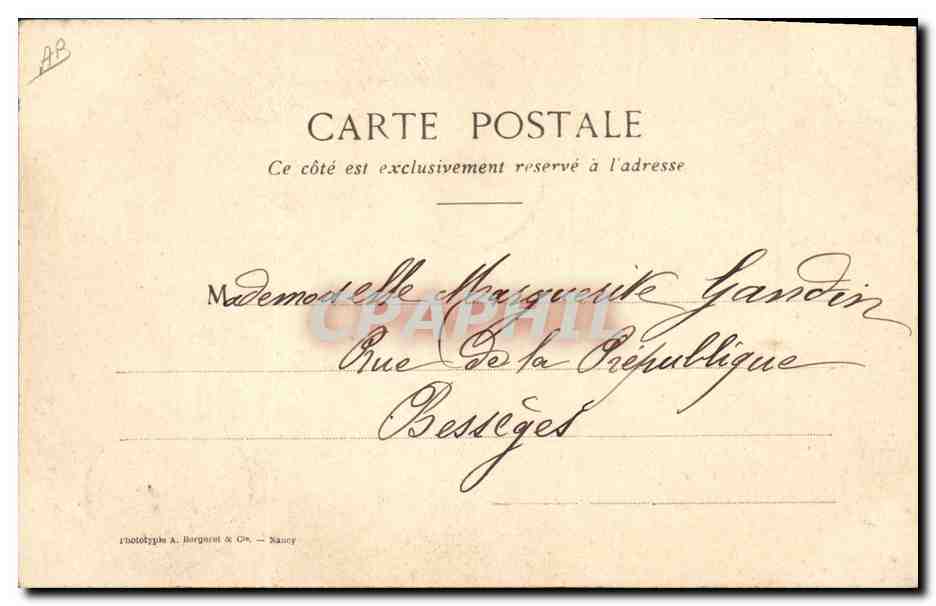 AB
CARTE POSTALE
Ce côté est exclusivement reservé à l'adresse
Mademoiselle Marguerite Gandin
CPAPHIL
Rue de la République
Bessèges
Phototypie A. Bergeret & Cie. — Nancy